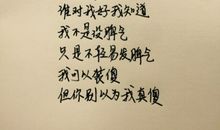 谁对我好我知道
我不是没脾气
只是不轻易发脾气
我可以装傻
但你别以为我真傻